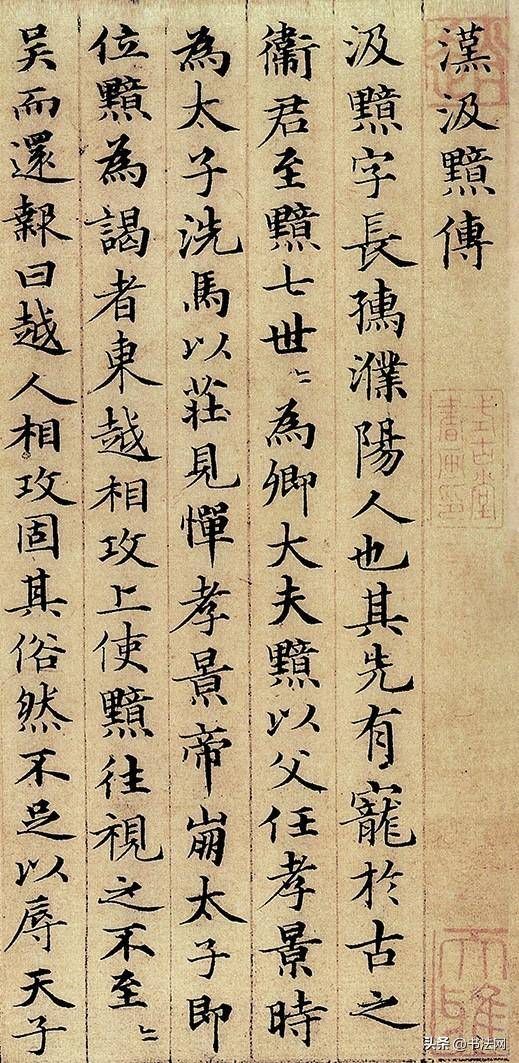 漢汲黯傳
汲黯字長孺濮陽人也其先有寵於古之
衞君至黯七世〻為卿大夫黯以父任孝景時
為太子洗馬以莊見憚孝景帝崩太子即
位黯為謁者東越相攻上使黯往視之不至〻
吳而還報曰越人相攻固其俗然不足以辱天子
式古堂
書畫印
大雅
头条 @书法网